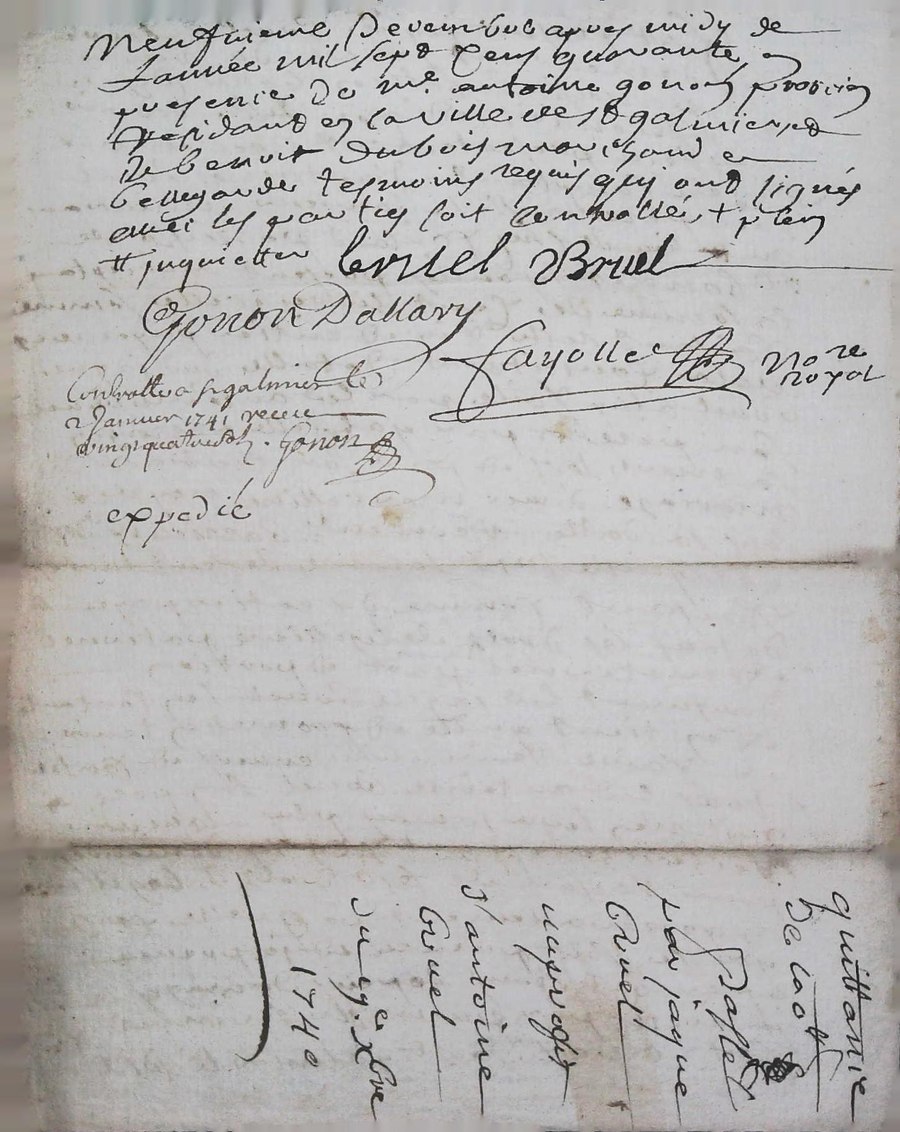 neufvieme decembre apres midy de
Lannée mil sept Cens quarante en
presence de me. antoine gonon praticien
residant en la ville de st galmier et
de benoit dubois marchand a
bellegarde tesmoins requis qui ont signés
avec les parties soit controllé, + plein
# inquietter bruel Bruel
Gonon Dallary
fayolle nore royal
Controlle a st galmier le
2 Janvier 1741 receu
vingt quatre sols. Gonon
expedié
quittance
de
par jaque
bruel
au profit
d'antoine
bruel
du 9e xbre
1740